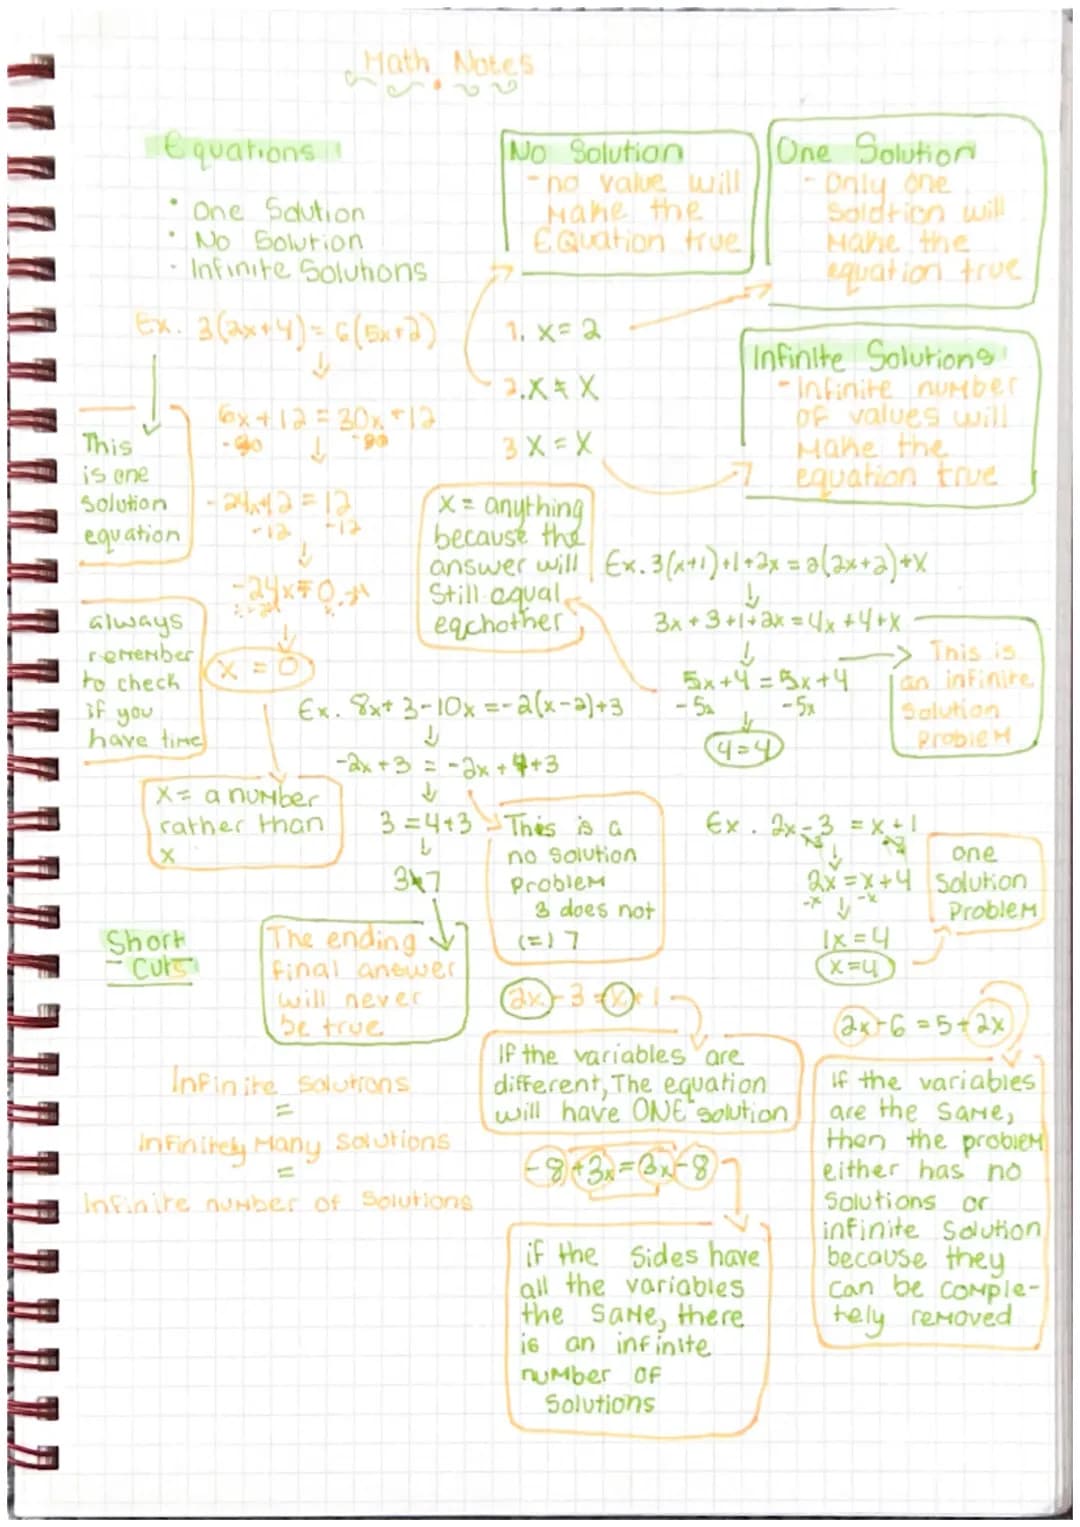 Math Notes
Equations
• One Solution
• No Solution
• Infinite Solutions
No Solution
- no value will
make the
Equation true
One Solution
- Only one
solution will
make the
equation true
1. x = 2
2. x ≠ x
3 x = x
Infinite Solutions
- Infinite number
of values will
make the
equation true
Ex. 3(2x+4) = 6(5x+2)
↓
6x+12 = 30x+12
↓
-24x+12 = 12
-12 -12
↓
↓
x = 0
This
is one
solution
equation
always
remember
to check
if you
have time
x = a number
rather than
x
x = anything
because the
answer will
still equal
eachother
Ex. 3(x+1)+1+2x = 2(2x+2)+x
↓
3x+3+1+2x = 4x+4+x
↓
5x+4 = 5x+4
-5x -5x
↓
4=4
This is
an infinite
solution
problem
Ex. 8x+3-10x = -2(x-2)+3
↓
-2x+3 = -2x+4+3
↓
3 = 4+3
↓
3≠7
This is a
no solution
problem
3 does not
(=) 7
The ending
final answer
will never
be true
Ex. 2x-3 = x+1
↓
2x = x+4
-x ↓ -x
1x=4
x=4
one
solution
problem
Short
Cuts
Infinite solutions
=
Infinitely Many solutions
=
Infinite number of solutions
2x-3 = x+1
If the variables are
different, The equation
will have ONE solution
-8+3x=3x-8
if the sides have
all the variables
the same, there
is an infinite
number of
solutions
2x-6 = 5+2x
if the variables
are the same,
then the problem
either has no
solutions or
infinite solution
because they
can be comple-
tely removed